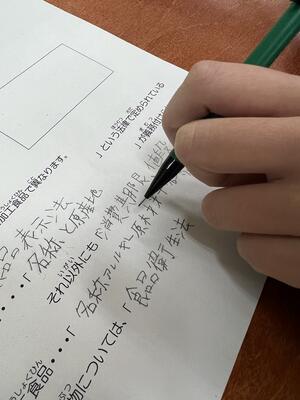 加工食品で異なります。
品表示法」という法律で定められている
・・・・「名称と原産地」が義務付け
それ以外にも「消費期限
食品・・・・「名称アレルギー原材
物については、「食品衛生法